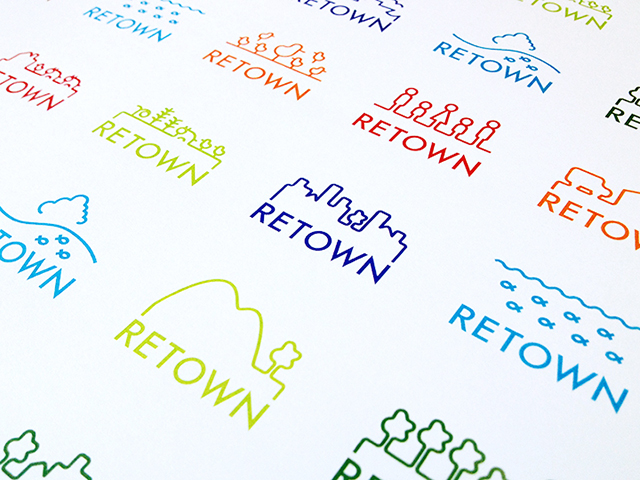 RETOWN
RETOWN
RETOWN
RETOWN
RETOWN
RETOWN
RETOWN
RETOWN
RETOWN
RETOWN
RETOWN